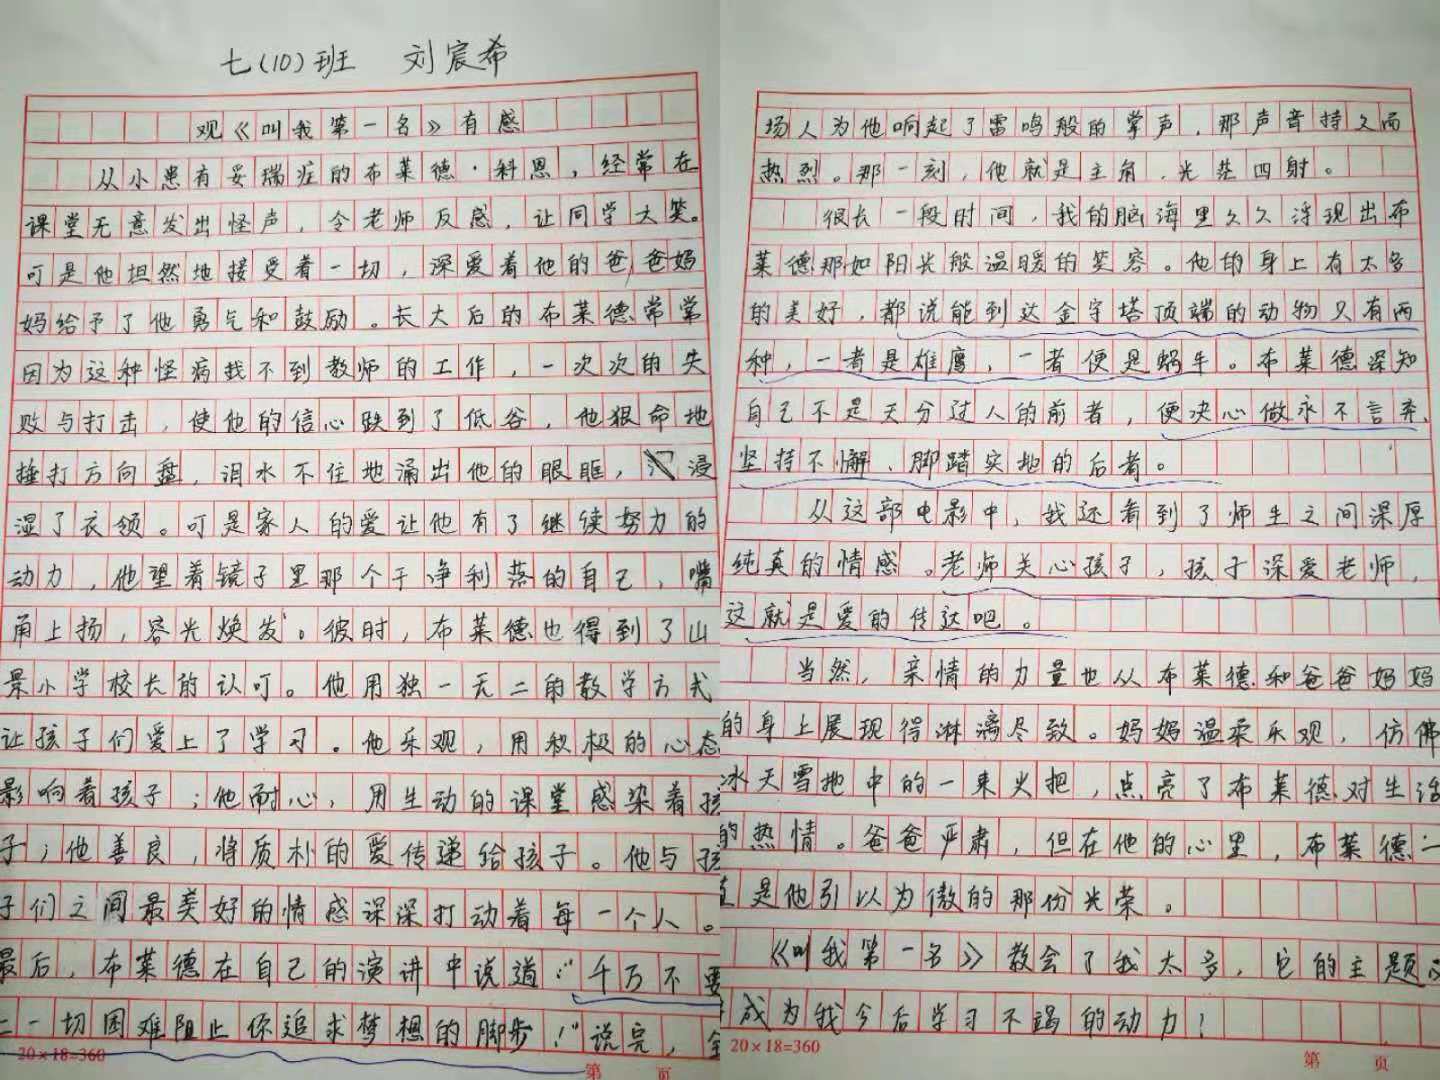 七(10)班 刘宸希
观《叫我第一名》有感
从小患有妥瑞症的布莱德·科恩，经常在
课堂无意发出怪声，令老师反感，让同学大笑。
可是他坦然地接受着一切，深爱着他的爸爸妈
妈给予了他勇气和鼓励。长大后的布莱德常常
因为这种怪病找不到教师的工作，一次次的失
败与打击，使他的信心跌到了低谷，他狠命地
捶打方向盘，泪水不住地涌出他的眼眶，浸
湿了衣领。可是家人的爱让他有了继续努力的
动力，他望着镜子里那个干净利落的自己，嘴
角上扬，容光焕发。彼时，布莱德也得到了山
景小学校长的认可。他用独一无二的教学方式
让孩子们爱上了学习。他乐观，用积极的心态
影响着孩子；他耐心，用生动的课堂感染着孩
子；他善良，将质朴的爱传递给孩子。他与孩
子们之间最美好的情感深深打动着每一个人。
最后，布莱德在自己的演讲中说道：“千万不要
让一切困难阻止你追求梦想的脚步！”说完，全
20×18=360
第 页
场人为他响起了雷鸣般的掌声，那声音持久而
热烈。那一刻，他就是主角，光芒四射。
很长一段时间，我的脑海里久久浮现出布
莱德那如阳光般温暖的笑容。他的身上有太多
的美好，都说能到达金字塔顶端的动物只有两
种，一者是雄鹰，一者便是蜗牛。布莱德深知
自己不是天分过人的前者，便决心做永不言弃、
坚持不懈、脚踏实地的后者。
从这部电影中，我还看到了师生之间深厚
纯真的情感。老师关心孩子，孩子深爱老师，
这就是爱的传达吧。
当然，亲情的力量也从布莱德和爸爸妈妈
的身上展现得淋漓尽致。妈妈温柔乐观，仿佛
冰天雪地中的一束火把，点亮了布莱德对生活
的热情。爸爸严肃，但在他的心里，布莱德一
直是他引以为傲的那份光荣。
《叫我第一名》教会了我太多，它的主题
成为我今后学习不竭的动力！
20×18=360
第 页